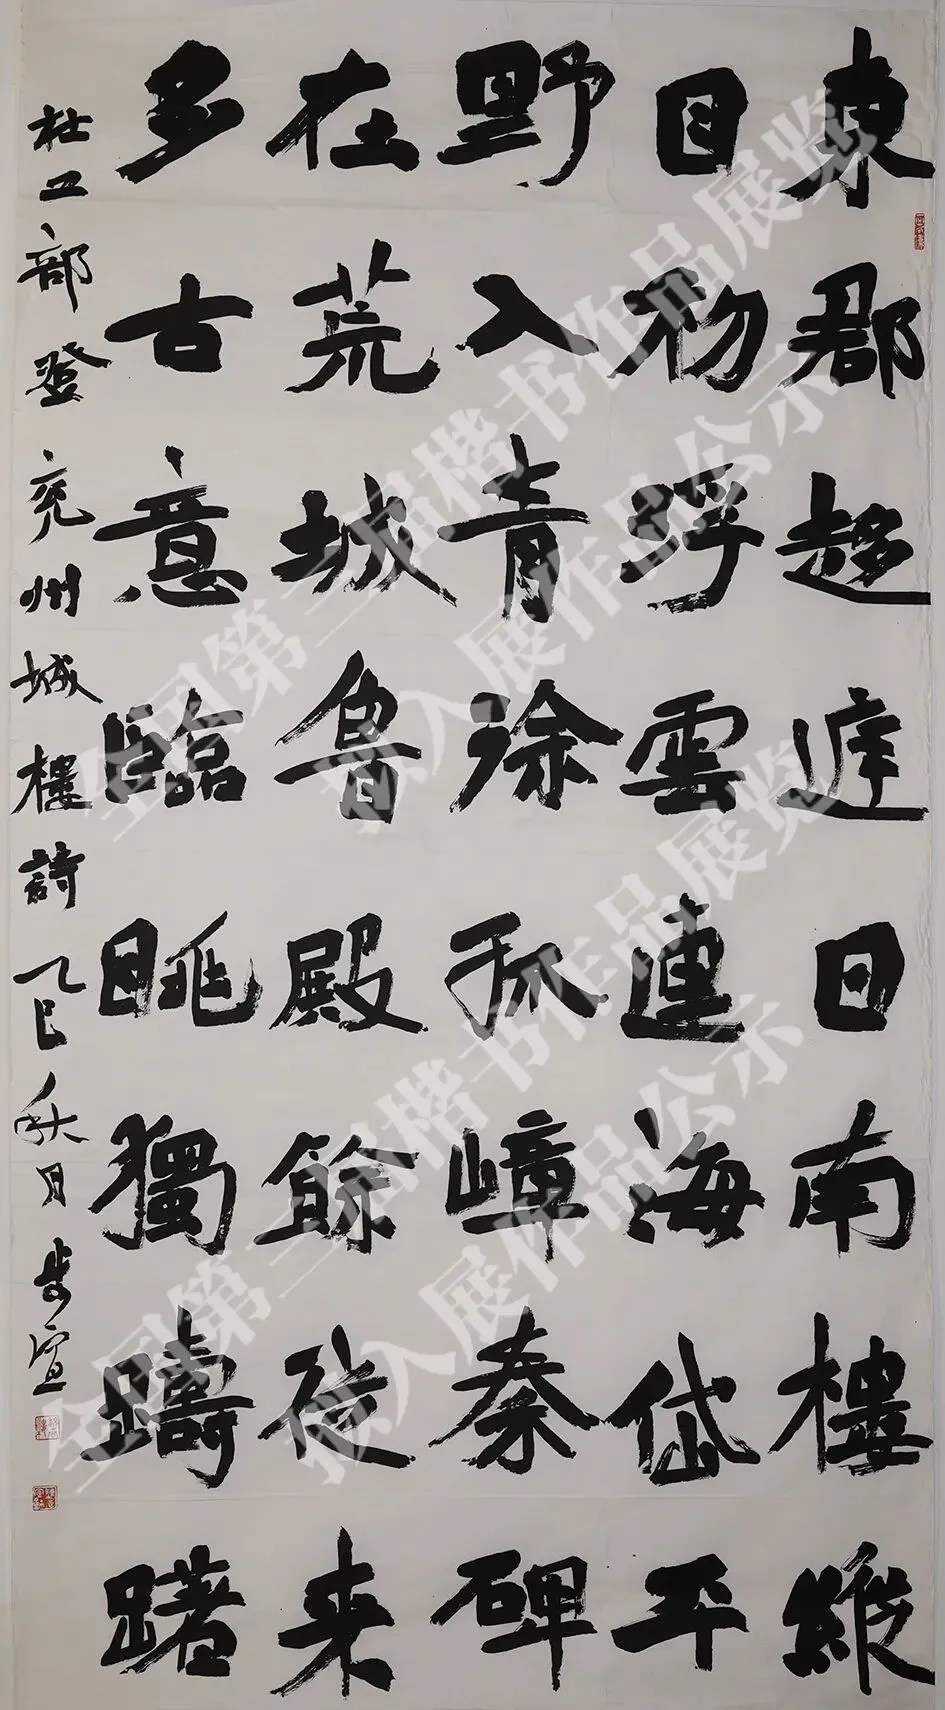 東郡趍庭日南樓縱
目初浮雲連海岱平
野入青徐孤嶂秦碑
在荒城魯殿餘從来
多古意臨眺獨躊躇
杜工部登兖州城樓詩乙巳秋月步宣
全国第三届楷书作品展览
拟入展作品公示
全国第三届楷书作品展览
拟入展作品公示